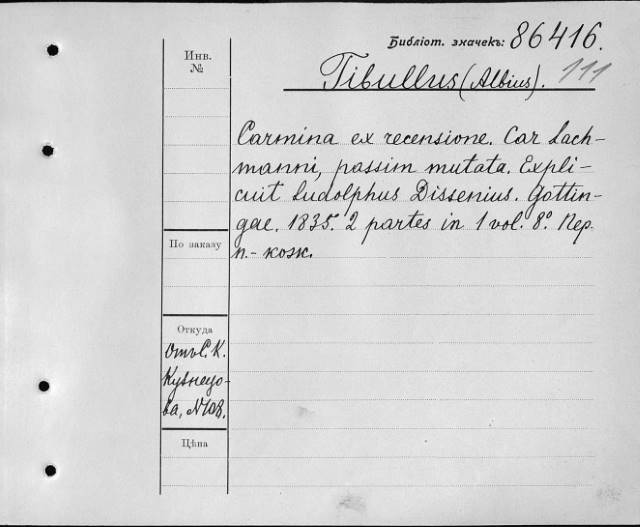 Библіот. значекъ: 86416.
Инв.
№
Tibullus (Albius). 111
Carmina ex recensione. Car Lach-
manni, passim mutata. Expli-
cuit Ludolphus Dissenius. Gottin-
gae. 1835. 2 partes in 1 vol. 8°. Пер.
п.- кож.
По заказу
Откуда
Отъ С. К.
Кузнецо-
ва, №108.
Цѣна